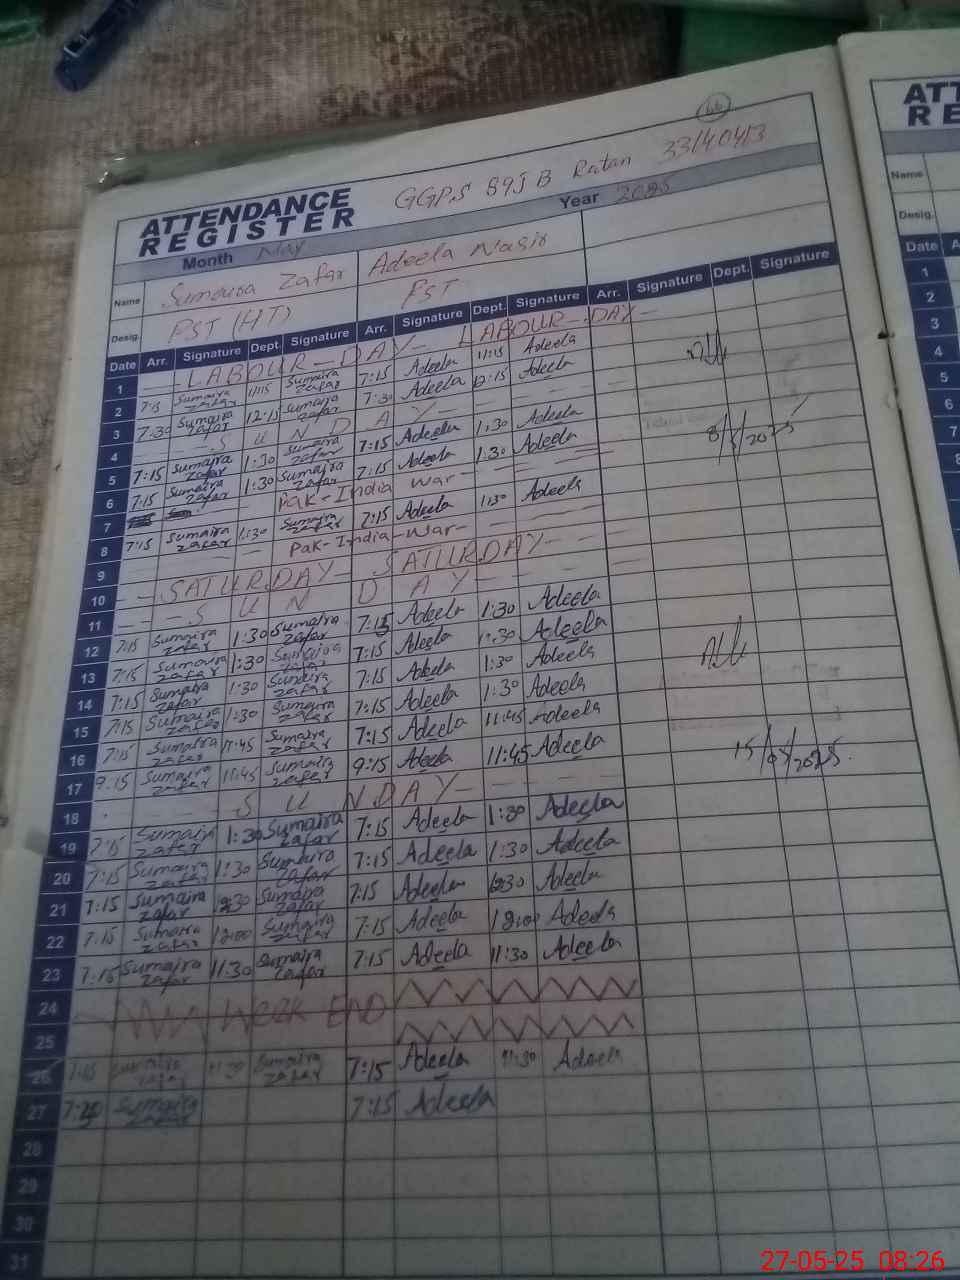 46
GGPS 89JB Ratan 33140413
ATTENDANCE
REGISTER
Month May Year 2025
Name Sumaira Zafar Adeela Nasir
Desig. PST (HT) PST
Date Arr. Signature Dept. Signature Arr. Signature Dept. Signature Arr. Signature Dept. Signature
1 LABOUR - DAY - LABOUR - DAY -
2 7:15 Sumaira Zafar 11:15 Sumaira Zafar 7:15 Adeela 11:15 Adeela
3 7:30 Sumaira Zafar 12:15 Sumaira Zafar 7:30 Adeela 12:15 Adeela
4 SUNDAY
5 7:15 Sumaira Zafar 1:30 Sumaira Zafar 7:15 Adeela 1:30 Adeela
6 7:15 Sumaira Zafar 1:30 Sumaira Zafar 7:15 Adeela 1:30 Adeela
7 Pak-India war
8 7:15 Sumaira Zafar 1:30 Sumaira Zafar 7:15 Adeela 1:30 Adeela
8/5/2025
9 Pak-India-war-
10 SATURDAY - SATURDAY -
11 SUNDAY
12 7:15 Sumaira Zafar 1:30 Sumaira Zafar 7:15 Adeela 1:30 Adeela
13 7:15 Sumaira Zafar 1:30 Sumaira Zafar 7:15 Adeela 1:30 Adeela
14 7:15 Sumaira Zafar 1:30 Sumaira Zafar 7:15 Adeela 1:30 Adeela
15 7:15 Sumaira Zafar 1:30 Sumaira Zafar 7:15 Adeela 1:30 Adeela
16 7:15 Sumaira Zafar 11:45 Sumaira Zafar 7:15 Adeela 11:45 Adeela
15/05/2025.
17 9:15 Sumaira Zafar 11:45 Sumaira Zafar 9:15 Adeela 11:45 Adeela
18 SUNDAY-
19 7:15 Sumaira Zafar 1:30 Sumaira Zafar 7:15 Adeela 1:30 Adeela
20 7:15 Sumaira Zafar 1:30 Sumaira Zafar 7:15 Adeela 1:30 Adeela
21 7:15 Sumaira Zafar Sumaira Zafar 7:15 Adeela Adeela
22 7:15 Sumaira Zafar 12:00 Sumaira Zafar 7:15 Adeela 12:00 Adeela
23 7:15 Sumaira Zafar 11:30 Sumaira Zafar 7:15 Adeela 11:30 Adeela
24 Week END
25
26 7:15 Sumaira Zafar 11:30 Sumaira Zafar 7:15 Adeela 11:30 Adeela
27 Sumaira Zafar 7:15 Adeela
28
29
30
31
ATT
RE
Name
Desig.
Date A
1
2
3
4
5
6
7
8
27-05-25 08:26